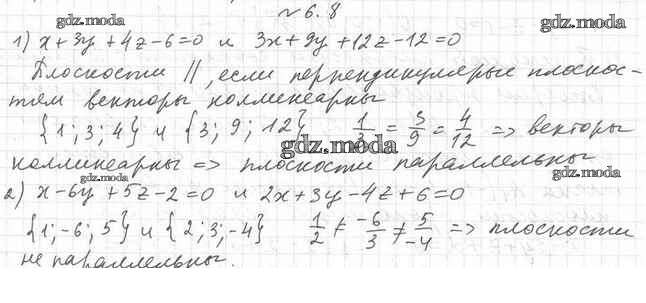 № 6.8
gdz.moda gdz.moda
1) x+3y+4z-6=0 и 3x+9y+12z-12=0
Плоскости ||, если перпендикулярые плоскос-
тям векторы коллинеарны
{1; 3; 4} и {3; 9; 12} 1/3 = 3/9 = 4/12 => векторы
gdz.moda
коллинеарны => плоскости параллельны
gdz.moda gdz.moda
2) x-6y+5z-2=0 и 2x+3y-4z+6=0
{1; -6; 5} и {2; 3; -4} 1/2 ≠ -6/3 ≠ 5/-4 => плоскости
не параллельны.